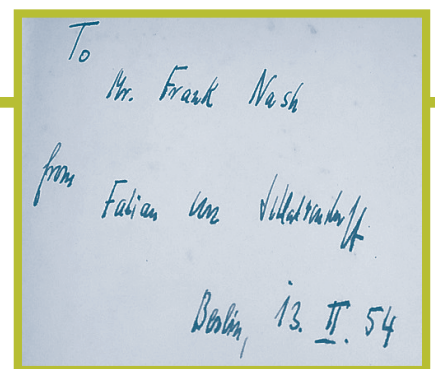 To
Mr. Frank Nash
from
Fabian von Schlabrendorff
Berlin, 13. II. 54